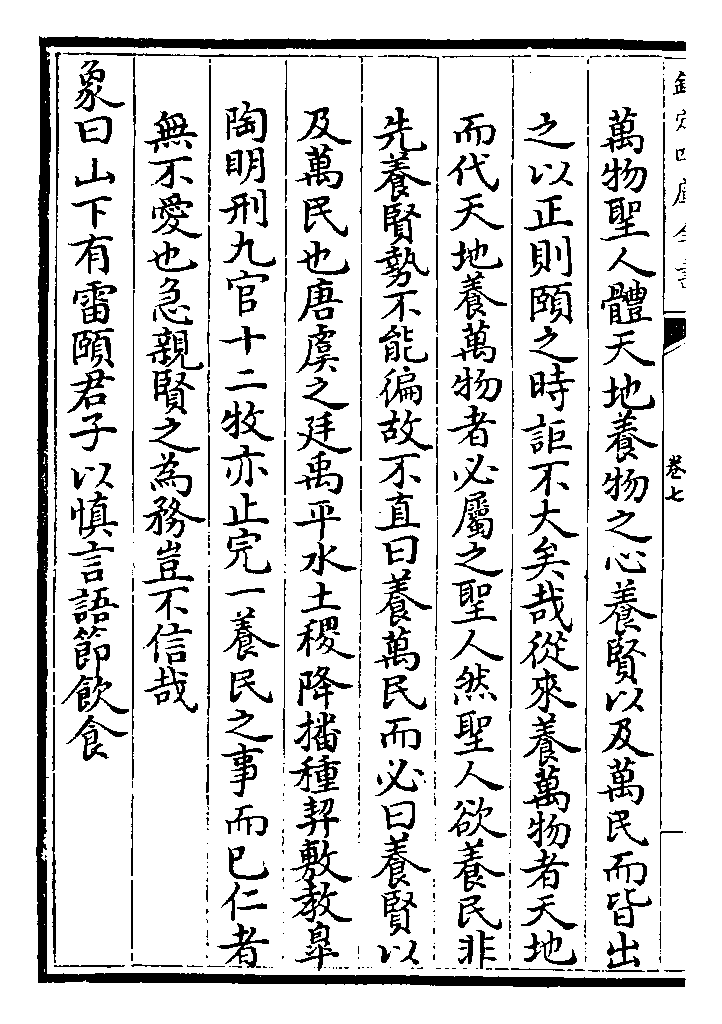 欽定四庫全書
卷七
萬物聖人體天地養物之心養賢以及萬民而皆出
之以正則頤之時詎不大矣哉從來養萬物者天地
而代天地養萬物者必屬之聖人然聖人欲養民非
先養賢勢不能徧故不直曰養萬民而必曰養賢以
及萬民也唐虞之廷禹平水土稷降播種契敷教臯
陶明刑九官十二牧亦止完一養民之事而已仁者
無不愛也急親賢之為務豈不信哉
象曰山下有雷頤君子以慎言語節飲食